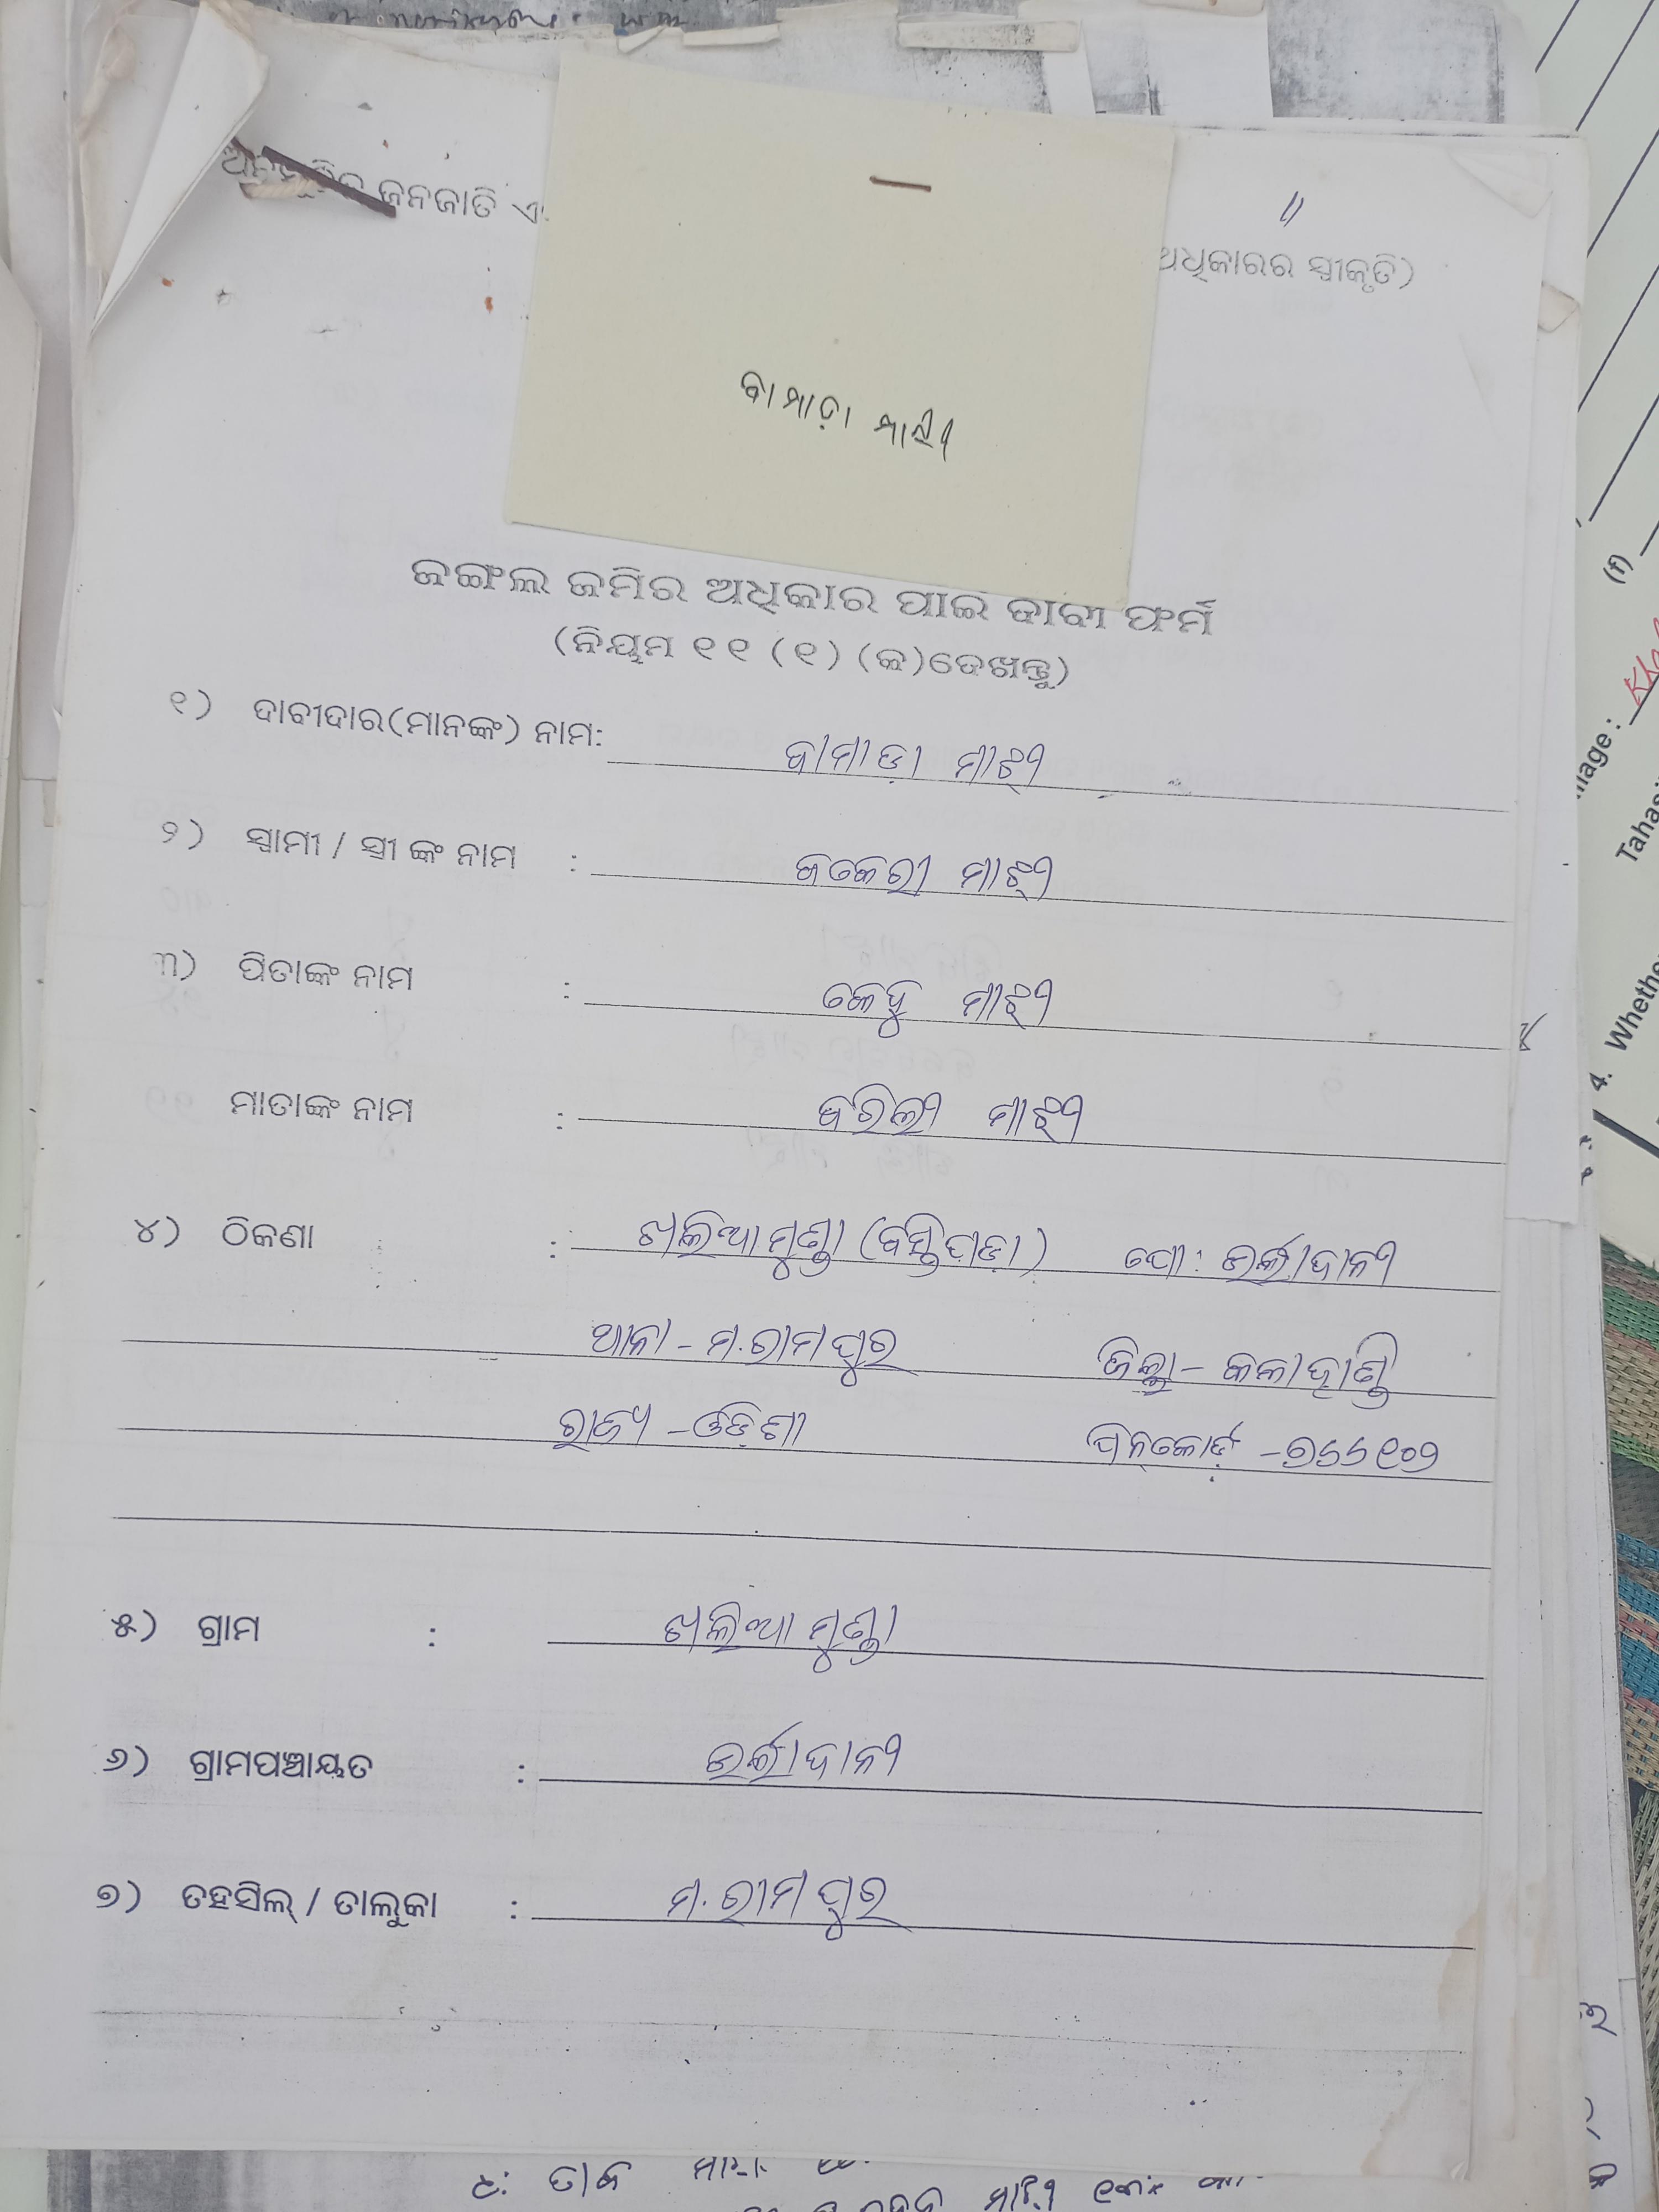 ଜନଜାତି
ଅଧିକାରର ସ୍ୱୀକୃତି)
ବାମାଡ଼ା ମାଝୀ
ଜଙ୍ଗଲ ଜମିର ଅଧିକାର ପାଇଁ ଦାବୀ ଫର୍ମ
(ନିୟମ ୧୧ (୧) (କ)ଦେଖନ୍ତୁ)
୧) ଦାବୀଦାର(ମାନଙ୍କ) ନାମ: ବାମାଡ଼ା ମାଝୀ
୨) ସ୍ୱାମୀ / ସ୍ତ୍ରୀ ଙ୍କ ନାମ : ମାଝୀ
୩) ପିତାଙ୍କ ନାମ : କେହୁ ମାଝୀ
ମାତାଙ୍କ ନାମ : ମାଝୀ
୪) ଠିକଣା : ଖଲିଆମୁଣ୍ଡା (ବସ୍ତିପଡ଼ା) ପୋ: ଉର୍ଲାଦାନୀ
ଥାନା - ମ.ରାମପୁର ଜିଲ୍ଲା - କଳାହାଣ୍ଡି
ରାଜ୍ୟ - ଓଡ଼ିଶା ପିନ୍‌କୋର୍ଡ଼ - ୭୬୬୧୦୨
୫) ଗ୍ରାମ : ଖଲିଆମୁଣ୍ଡା
୬) ଗ୍ରାମପଞ୍ଚାୟତ : ଉର୍ଲାଦାନୀ
୭) ତହସିଲ୍ / ତାଲୁକା : ମ.ରାମପୁର
(f)
4. Whethe